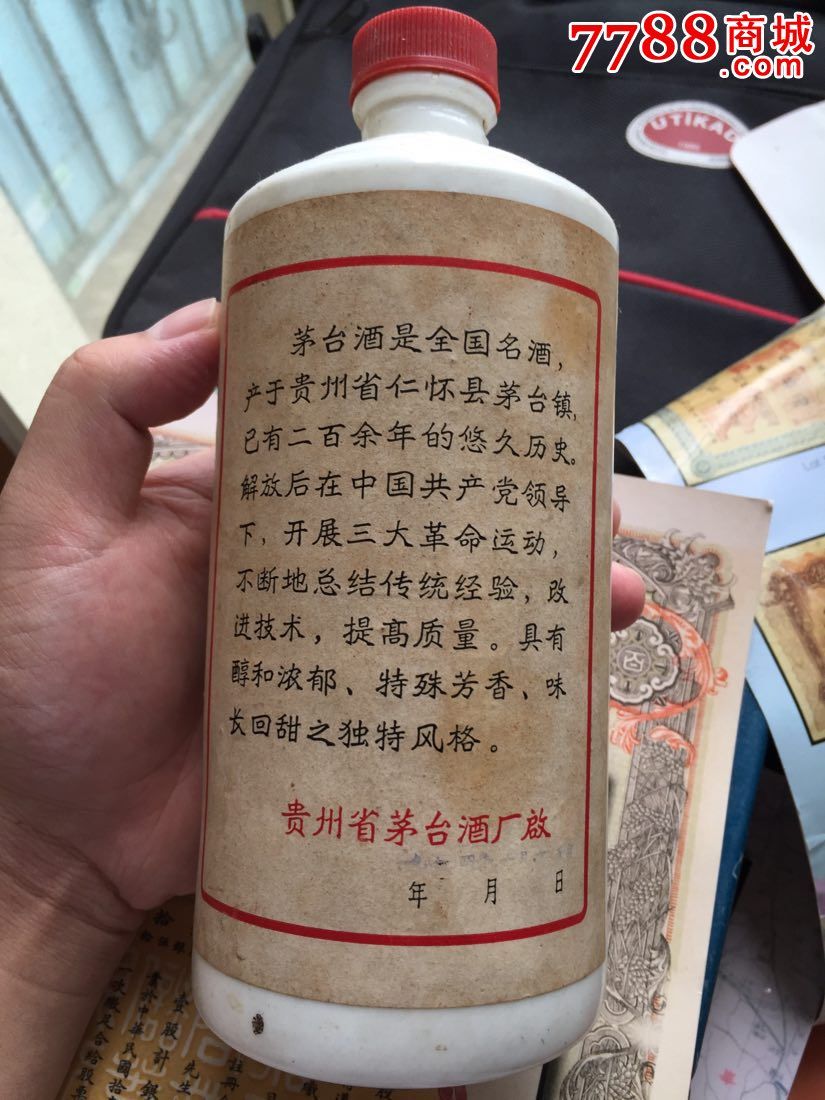 7788商城
.com
UTIKAD
茅台酒是全国名酒,
产于贵州省仁怀县茅台镇,
已有二百余年的悠久历史。
解放后在中国共产党领导
下,开展三大革命运动,
不断地总结传统经验,改
进技术,提高质量。具有
醇和浓郁、特殊芳香、味
长回甜之独特风格。
贵州省茅台酒厂啟
年 月 日
百
拾
壹股計銀
先生